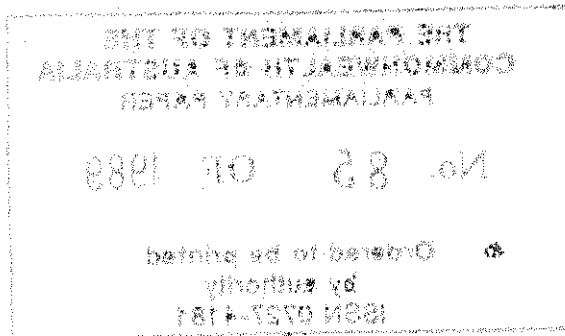 THE PARLIAMENT OF THE
COMMONWEALTH OF AUSTRALIA
PARLIAMENTARY PAPER
No. 85 OF 1989
Ordered to be printed
by authority
ISSN 0727-4181